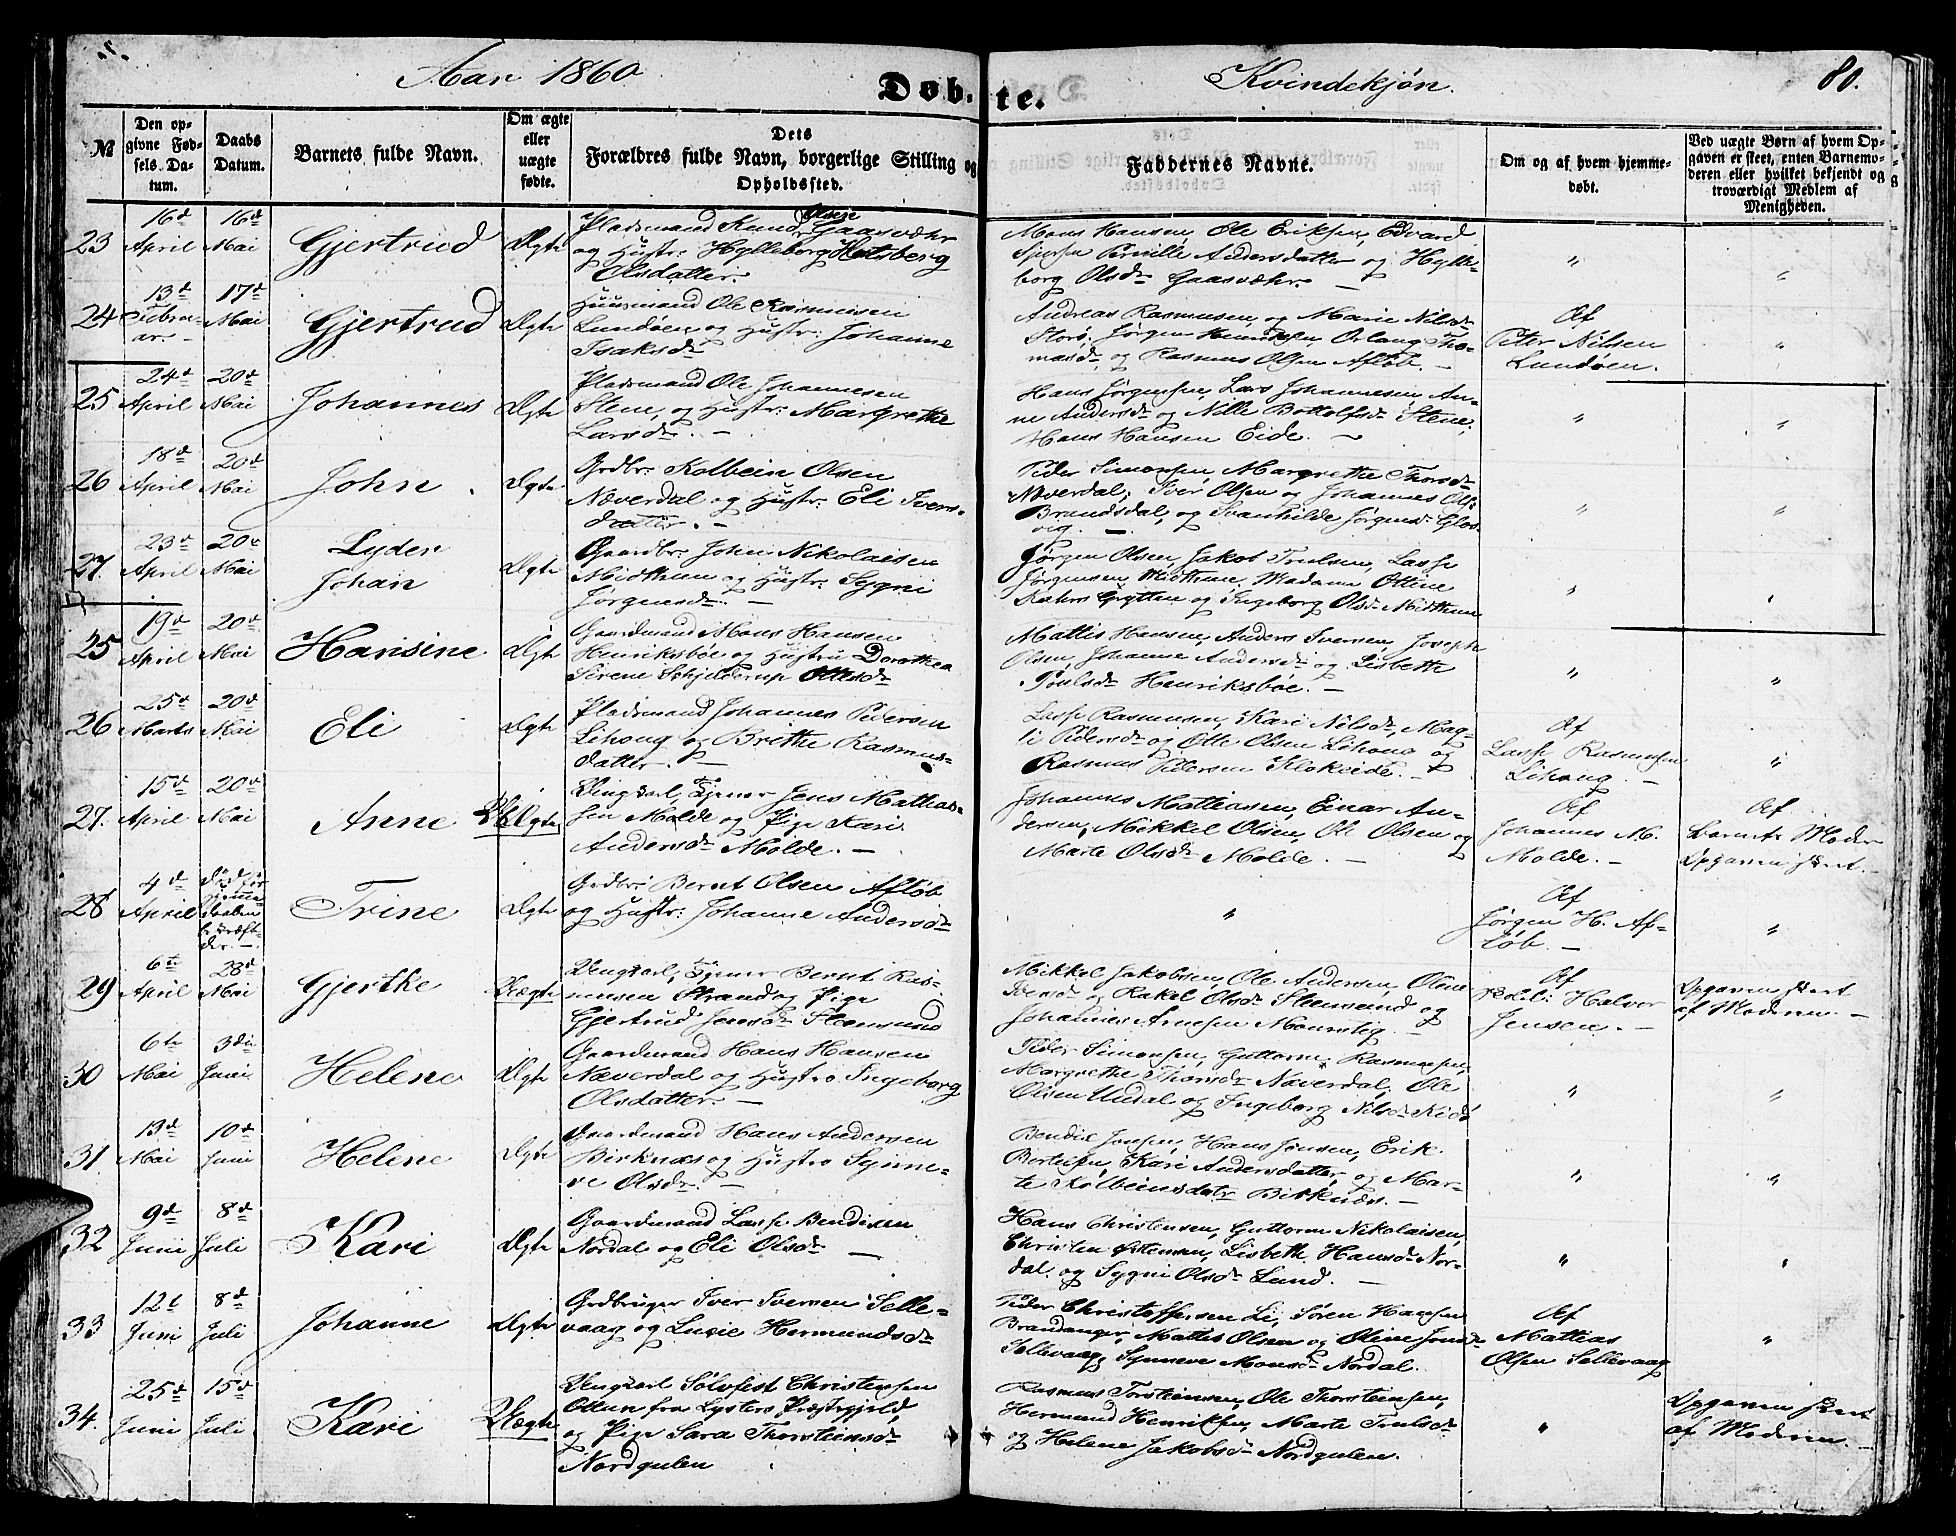 Aar 1860.
Døb-
te.
Kvindekjøn.
80.
№
Den op-
givne Fød-
sels Da-
tum.
Daabs
Datum.
Barnets fulde Navn.
Om ægte
eller
uægte
fødte.
Dets
Forældres fulde Navn, borgerlige Stilling og
Opholdssted.
Faddernes Navne.
Om og af hvem hjemme-
døbt.
Ved uægte Børn af hvem Op-
gaven er skeet, enten Barnemo-
deren eller hvilket bekjendt og
troværdigt Medlem af
Menigheden.
23
16d
April
16d
Mai
Gjertrud
Ægte
Pladsmand Knud Gaasvær
og Hustr: Hylleborg
Olsdatter.
Mons Hansen, Ole Eriksen, Edvard
Pernille Andersdatter og Hylle-
borg Olsdr Gaasvær. —
"
"
24
13d
Febru-
ar.
17d
Mai
Gjertrud
Ægte
Huusmand Ole Rasmussen
Lundøen og Hustr: Johanne
Isaksdr
Andreas Rasmussen og Marie Nilsdr
Storø. Jørgen Henriksen, Tho-
masdr og Rasmus Olsen Afløb. —
Af
Peter Nilsen
Lundøen.
"
25
24d
April
20d
Mai
Johannes
Ægte
Pladsmand Ole Johannesen
Stene, og Hustr: Margrethe
Larsdr. —
Hans Jørgensen, Lars Johannesen An-
ne Andersdr og Nille Bottolfsdr Stene,
Hans Hansen Eide. —
"
"
26
18d
April
20d
Mai
John
Ægte
Grdbr: Kolbein Olsen
Næverdal og Hustr: Eli Ivers-
datter. —
Peder Simonsen, Margrethe Thorsdr
Næverdal; Iver Olsen og Johannes Ols:
Brandsdal, og Svanhilde Jørgensdr Glos-
vig. —
"
"
27.
23d
April
20d
Mai
Lyder
Johan
Ægte
Gaardbr: John Nikolaisen
Midthun og Hustr: Sygni
Jørgensdr. —
Jørgen Olsen, Jakob Trulsen, Lasse
Jørgensen, Midthun, Madame Ottine
Grytten og Ingeborg Olsdr Midthun
"
"
25
19d
April
20d
Mai
Hansine
Ægte
Gaardmand Mons Hansen
Henriksbøe og Hustru Dorothea
Sirene Schjelderup Ottesdr
Mattis Hansen, Anders Iversen, Joseph
Olsen, Johanne Andersdr og Lisbeth
Poulsdr Henriksbøe. —
"
"
26
25d
Marts
20d
Mai
Eli
Ægte
Pladsmand Johannes Pedersen
Lihaug og Brithe Rasmus-
datter. —
Lasse Rasmussen, Kari Nilsdr, Mag-
li Pedersdr og Otte Olsen Lihaug og
Rasmus Pedersen Flokeide. —
Af
Lasse Rasmussen
Lihaug. —
"
27.
15d
April
20d
Mai
Anne
Uægte
Ungkarl, Tjener Jens Mathias-
sen Molde og Pige Kari
Andersdr Molde. —
Johannes Mathiasen, Einar An-
dersen, Mikkel Olsen, Ole Olsen og
Marte Olsdr Molde. —
Af
Johannes M.
Molde. —
Af
Barnets Moder
Opgaven skeet. —
28
4d
April
Død før
hjemme-
daaben
bekræft-
der. —
Trine
Ægte
Grdbr: Bernt Olsen Afløb
og Hustr: Johanne Andersdr
"
Af
Jørgen H. Af-
løb. —
"
29
6te
April
28d
Mai
Gjertke
Uægte
Ungkarl, Tjener Bernt Ras-
mussen Strand og Pige
Gjertrud Jensdr Steensund
Mikkel Jakobsen, Ole Andersen, Oline
Iversdr og Rakel Olsdr Steensund og
Johannes Arnesen —
Af
Halvor
Jensen. —
Opgaven skeet
af Moderen. —
30
6te
Mai
3die
Juni
Helene
Ægte
Gaardmand Hans Hansen
Næverdal og Hustro Ingeborg
Olsdatter. —
Peder Simonsen, Guttorm Rasmussen,
Margrethe Thorsdr Næverdal, Ole
Olsen Undal og Ingeborg Nilsdr
"
"
31.
13d
Mai
10d
Juni
Helene
Ægte
Gaardmand Hans Andersen
Birknæs og Hustro Synne-
ve Olsdr. —
Bendix Jensen, Hans Jonsen, Erik
Bertelsen, Kari Andersdatter, og Mar-
te Kolbeinsdatr Birknæs. —
"
"
32
9d
Juni
8d
Juli
Kari
Ægte
Gaardmand Lasse Bendixen
Nordal og Eli Olsdr —
Hans Christensen, Guttorm Nikolaisen,
Christen Østensen, Lisbeth Hansdr Nor-
dal. og Sygni Olsdr Lund. —
"
"
33
12t
Juni
8d
Juli
Johanne
Ægte
Grdbruger Iver Iversen Selle-
vaag og Lucie Hermundsdr
Peder Christoffersen Li, Søren Hansen
Brandanger, Mattis Olsen og Oline Jonsdr
Sellevaag, Synneve Monsdr Nordal.
Af
Mathias
Olsen Sellevaag
"
34.
25d
Juni
15d
Juli
Kari
Uægte
Ungkarl Sølfest Christensen
Ottun fra Lysters Præstegjeld,
og Pige Sara Thorsteinsdr
Nordgulen
Rasmus Torstensen, Ole Thorsteinsen,
Hermund Henriksen, Marte Trulsdr
og Helene Jakobsdr Nordgulen.
"
Opgaven skeet
af Moderen. —